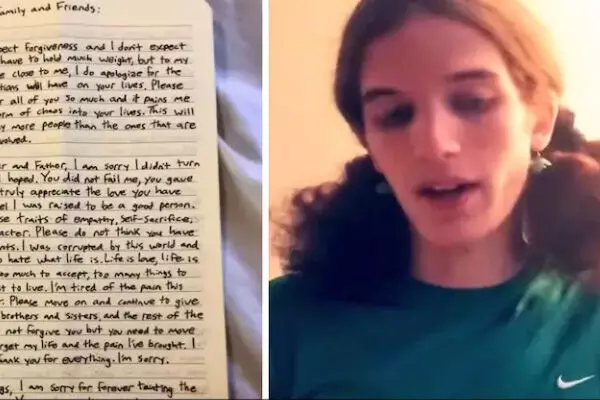 Family and Friends:
pect forgiveness and I don't expect
have to hold much weight, but to my
e close to me, I do apologize for the
tions will have on your lives. Please
r all of you so much and it pains me
orm of chaos into your lives. This will
y more people than the ones that are
volved.
er and Father, I am sorry I didn't turn
I hoped. You did not fail me, you gave
truly appreciate the love you have
el I was raised to be a good person.
se traits of empathy, self-sacrifice,
acter. Please do not think you have
nts. I was corrupted by this world and
o hate what life is. Life is love, life is
oo much to accept, too many things to
t to live. I'm tired of the pain this
r. Please move on and continue to give
brothers and sisters, and the rest of the
not forgive you but you need to move
rget my life and the pain I've brought. I
hank you for everything. I'm sorry.
gs, I am sorry for forever tainting the